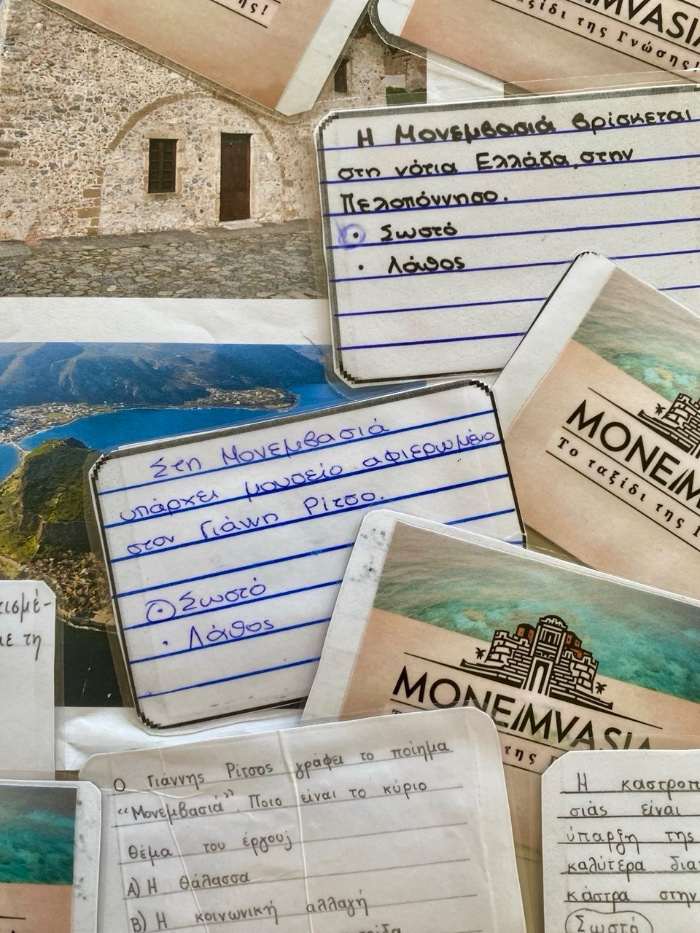 ης!
MVASIA
Το ταξίδι της Γνώσης!
Η Μονεμβασιά βρίσκεται
στη νότια Ελλάδα, στην
Πελοπόννησο.
• Σωστό
• Λάθος
MONE/MVAS
Το ταξίδι της Γ
Στη Μονεμβασιά
υπάρχει μουσείο αφιερωμένο
στον Γιάννη Ρίτσο.
• Σωστό
• Λάθος
MONE/MVASIA
της Γ
τισμέ-
με τη
Ο Γιάννης Ρίτσος γράφει το ποίημα
"Μονεμβασιά" Ποιο είναι το κύριο
θέμα του έργου;
Α) Η θάλασσα
Β) Η κοινωνική αλλαγή
Η καστροπ
σιάς είναι
ύπαρξη της
καλύτερα δια
κάστρα στην
Σωστό